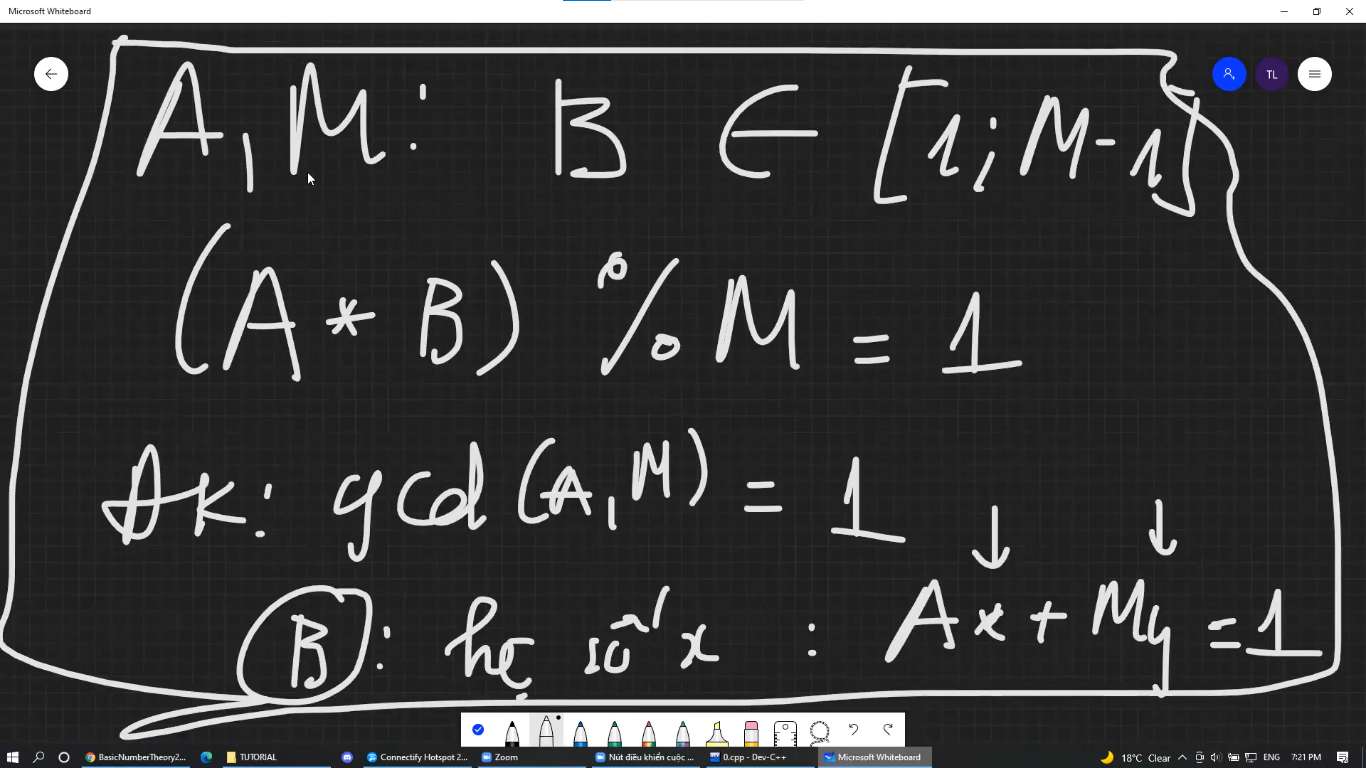 Microsoft Whiteboard
TL
A, M: B ∈ [1; M-1]
(A * B) % M = 1
ĐK: gcd(A, M) = 1
↓ ↓
B: hệ số x : Ax + My = 1
BasicNumberTheory2...
TUTORIAL
Connectify Hotspot 2...
Zoom
Nút điều khiển cuộc ...
0.cpp - Dev-C++
Microsoft Whiteboard
18°C Clear
ENG
7:21 PM